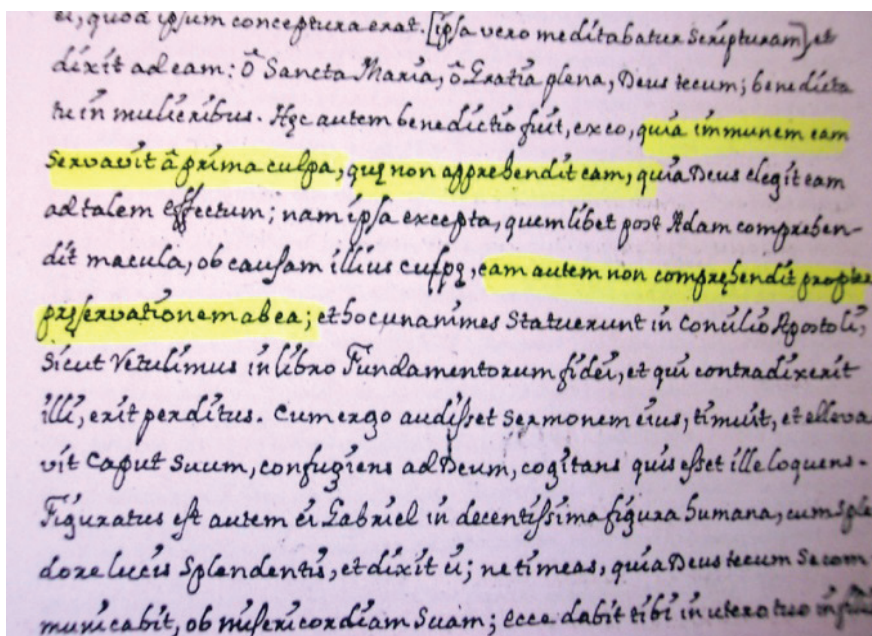 ei, quod ipsum conceptura erat. [ipsa vero meditabatur Scripturam], et
dixit ad eam: ô Sancta Maria, ô Gratia plena, Deus tecum; benedicta
tu in mulieribus. Hęc autem benedictio fuit, ex eo, quia immunem eam
Servavit â prima culpa, quę non apprehendit eam, quia Deus elegit eam
ad talem effectum; nam ipsa excepta, quemlibet post Adam comprehen-
dit macula, ob causam illius culpę, eam autem non compręhendit propter
pręservationem ab ea; et hoc unanimes Statuerunt in Concilio Apostoli,
Sicut Vetulimus in libro Fundamentorum fidei, et qui contradixerit
illi, erit perditus. Cum ergo audisset Sermonem eius, timuit, et elleva
vit Caput Suum, confugiens ad Deum, cogitans quis esset ille loquens.
Figuratus est autem ei Gabriel in decentissima figura humana, cum Sple
dore lucis Splendentis, et dixit ei; ne timeas, quia Deus tecum Se com
municabit, ob misericordiam Suam; ecce dabit tibi in utero tuo